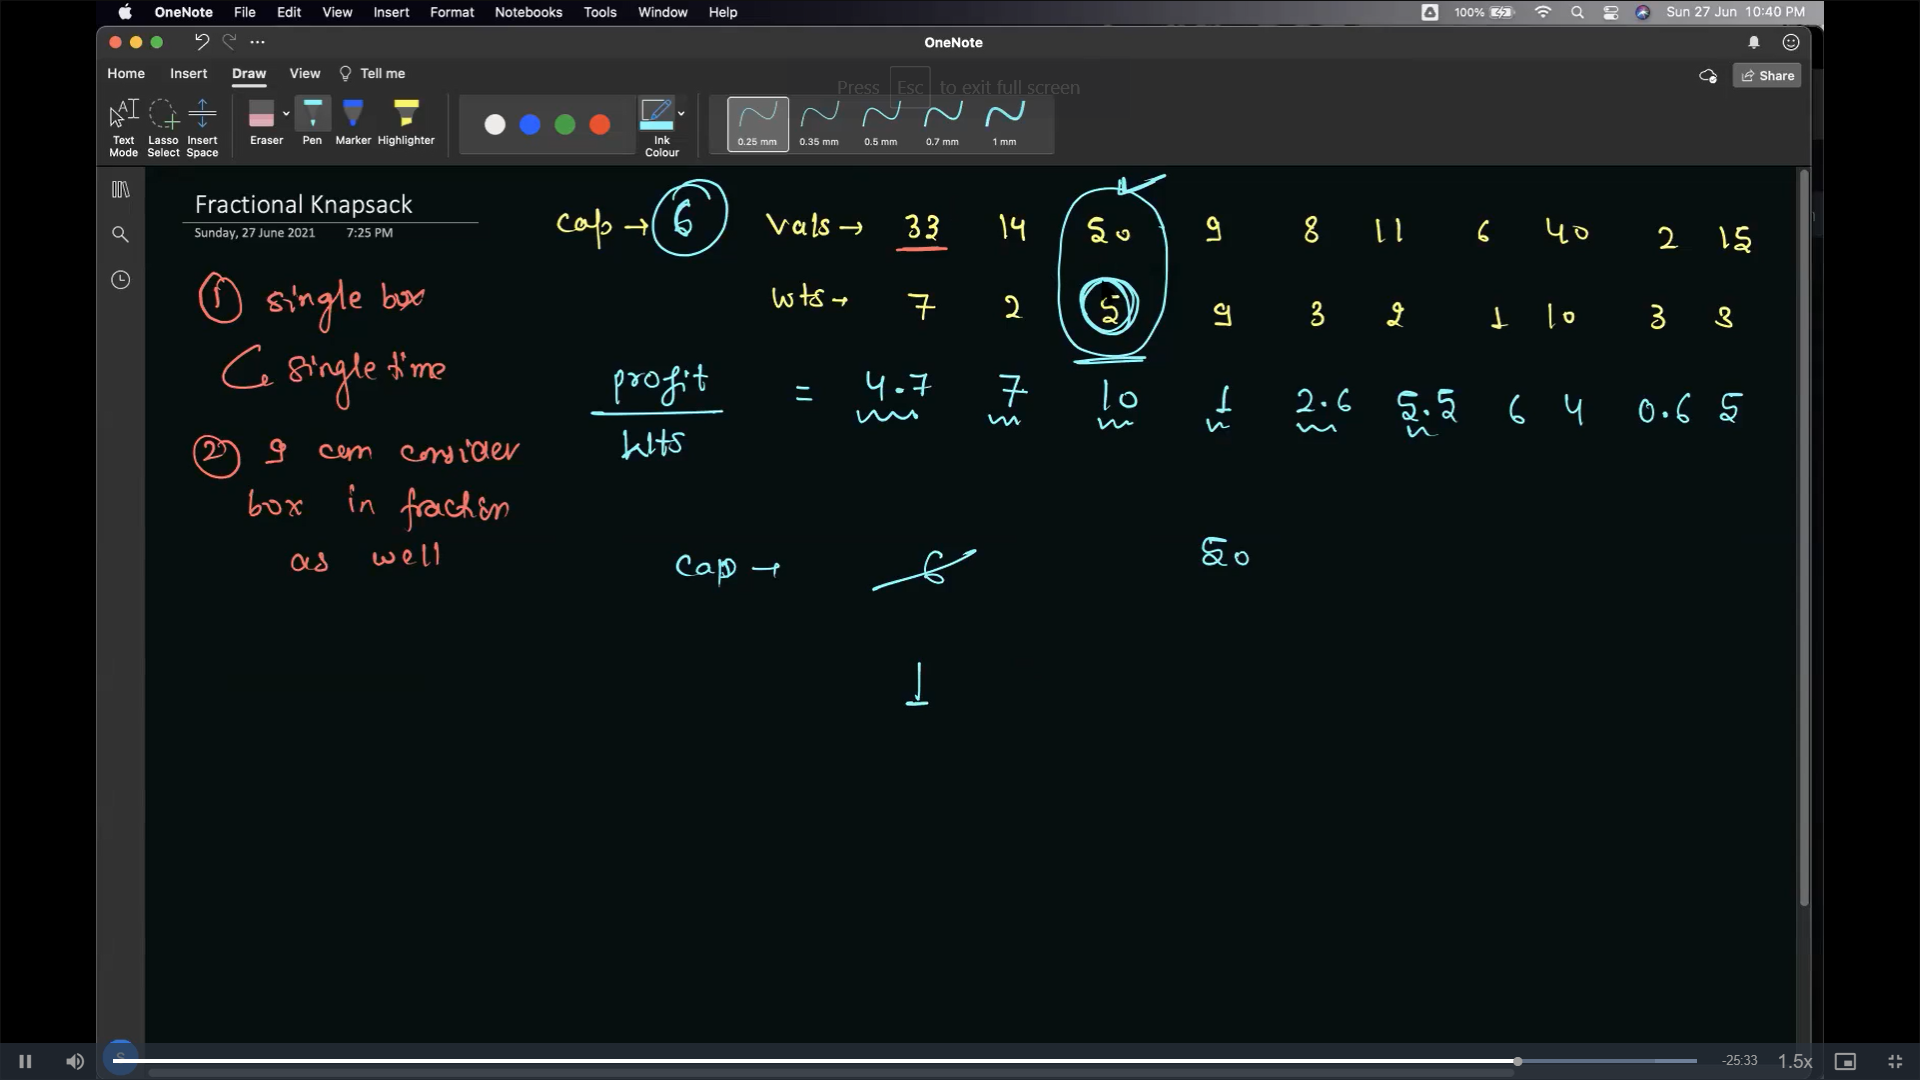 OneNote File Edit View Insert Format Notebooks Tools Window Help 100% Sun 27 Jun 10:40 PM
OneNote
Home Insert Draw View Tell me Share
Press Esc to exit full screen
Text Mode Lasso Select Insert Space Eraser Pen Marker Highlighter Ink Colour 0.25 mm 0.35 mm 0.5 mm 0.7 mm 1 mm
Fractional Knapsack
Sunday, 27 June 2021 7:25 PM
① single box
single time
② I can consider
box in fraction
as well
cap → 6 vals → 33 14 50 9 8 11 6 40 2 15
wts → 7 2 5 9 3 2 1 10 3 3
profit = 4.7 7 10 1 2.6 5.5 6 4 0.6 5
wts
cap → 6 50
1
S
-25:33 1.5x